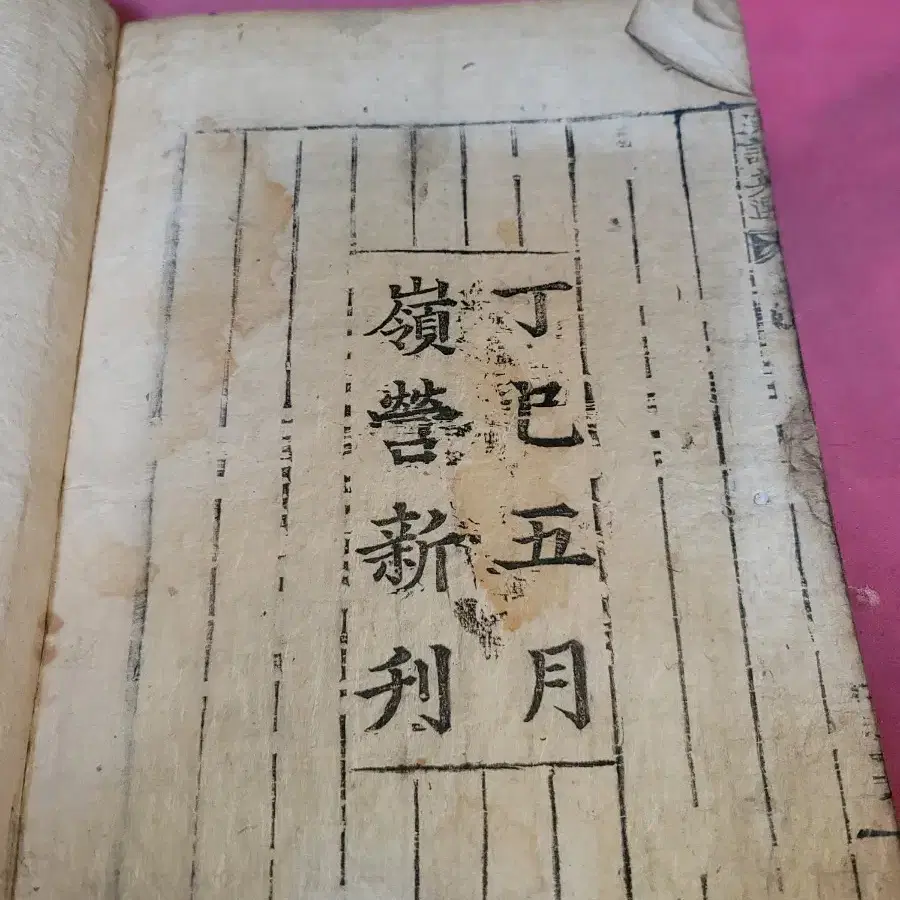 丁巳五月
嶺營新刊